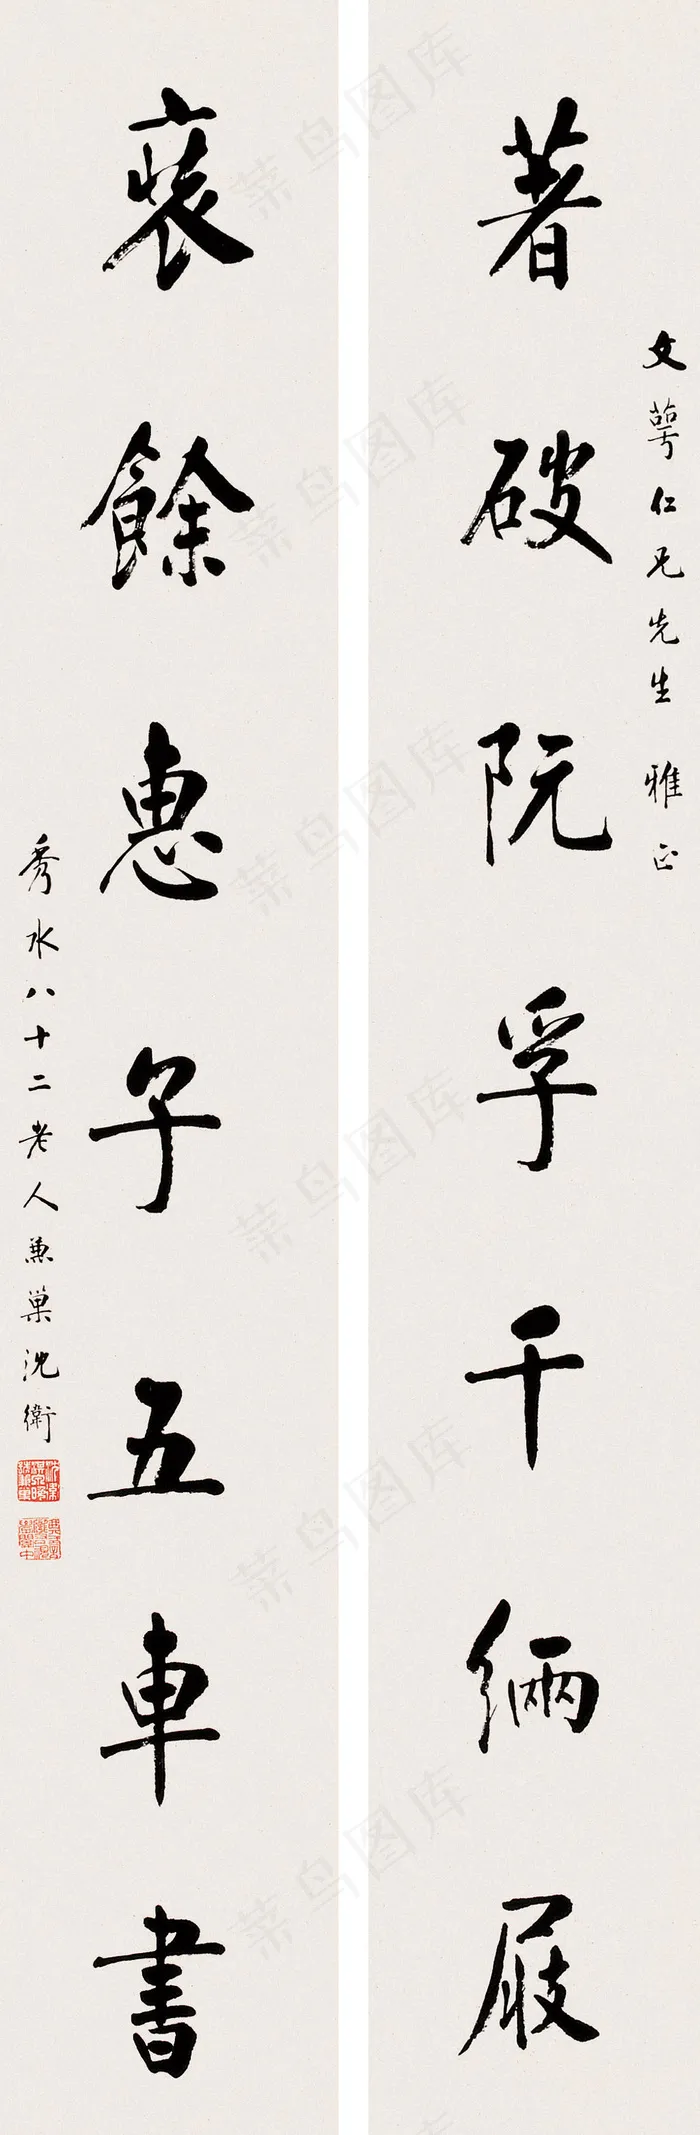 文萼仁兄先生 雅正
著破阮孚千緉屐
裒餘惠子五車書
秀水八十二老人兼巢沈衛
菜鸟图库